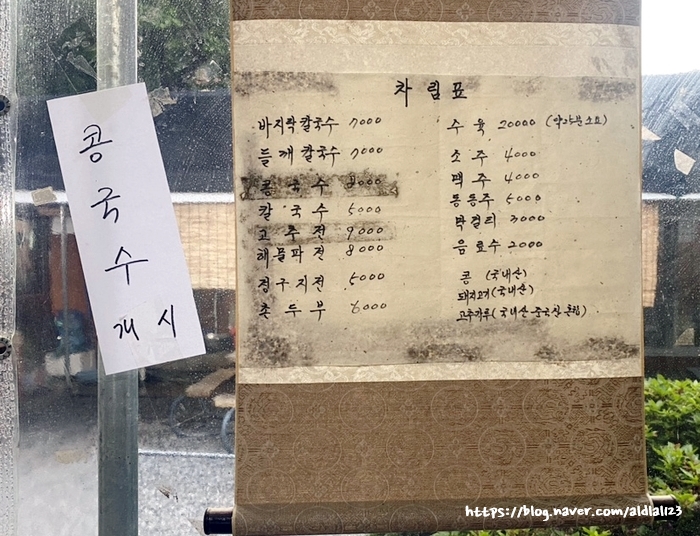 콩
국
수
개시
차림표
바지락칼국수 7000
들깨칼국수 7000
콩국수 8000
칼국수 5000
고추전 9000
해물파전 8000
정구지전 5000
촌두부 6000
수육 20000 (약 15분 소요)
소주 4000
맥주 4000
동동주 5000
막걸리 3000
음료수 2000
콩 (국내산)
돼지고기 (국내산)
고추가루 (국내산 중국산 혼합)
https://blog.naver.com/aldlal123